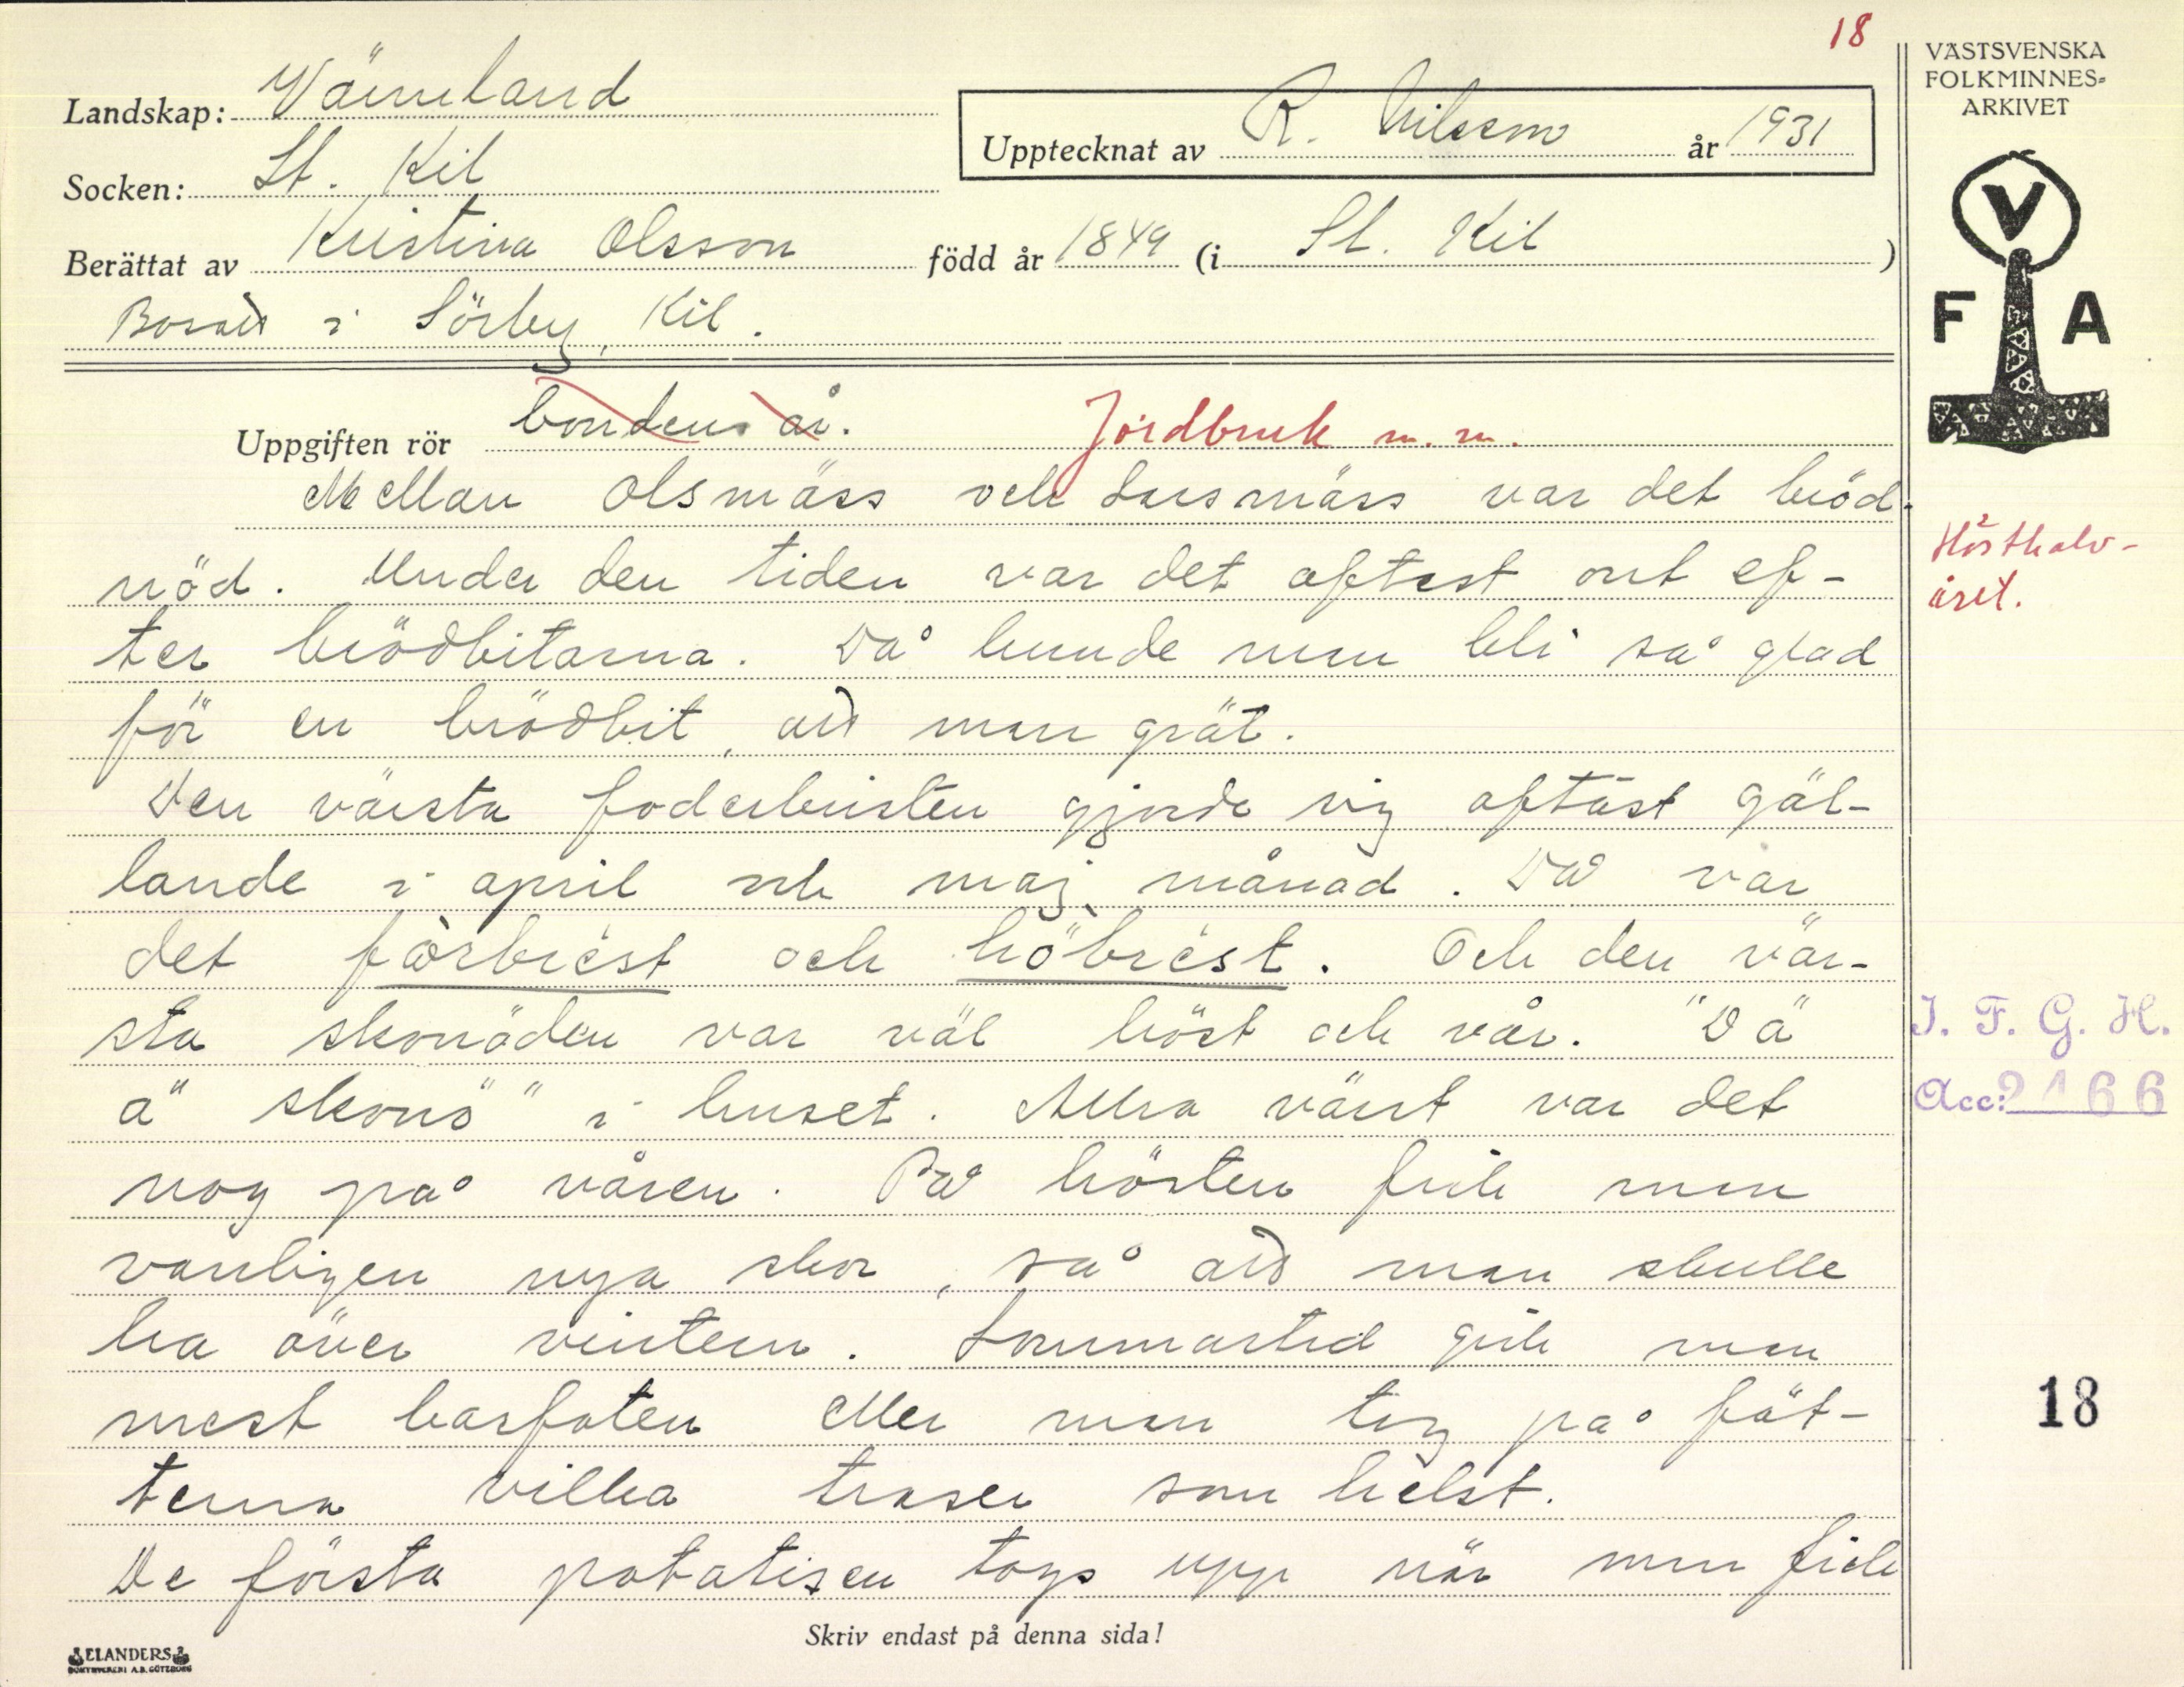 18
VÄSTSVENSKA
FOLKMINNES=
ARKIVET
Landskap: Värmland
Upptecknat av R. Nilsson år 1931
Socken: St. Kil
Berättat av Kristina Olsson född år 1849 (i St. Kil )
Bosatt i Sörby, Kil.
V
F A
Uppgiften rör bondens år. Jordbruk m. m.
Mellan Olsmäss och Larsmäss var det bröd-
nöd. Under den tiden var det oftast ont ef-
ter brödbitarna. Då kunde man bli så glad
för en brödbit, att man grät.
Den värsta foderbristen gjorde sig oftast gäl-
lande i april och maj månad. Då var
det fòrbrèst och höbrèst. Och den vär-
sta skonöden var väl höst och vår. "Dä
ä skonö" i huset. Allra värst var det
nog på våren. På hösten fick man
vanligen nya skor, så att man skulle
ha över vintern. Sommartid gick man
mest barfoten eller man tog på föt-
terna vilka trasor som helst.
De första potatisen togs upp när man fick
Hösthalv-
året.
I. F. G. H.
Acc: 2166
18
Skriv endast på denna sida!
ELANDERS
BOKTRYCKERI A.B. GÖTEBORG